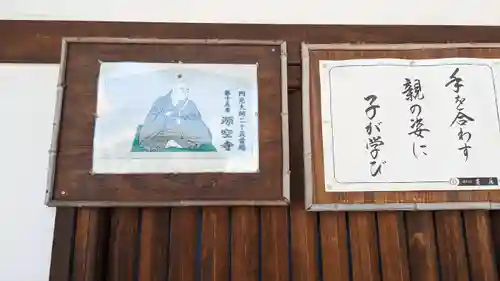 円光大師二十五霊場
第十五番
源空寺
手を合わす
親の姿に
子が学び